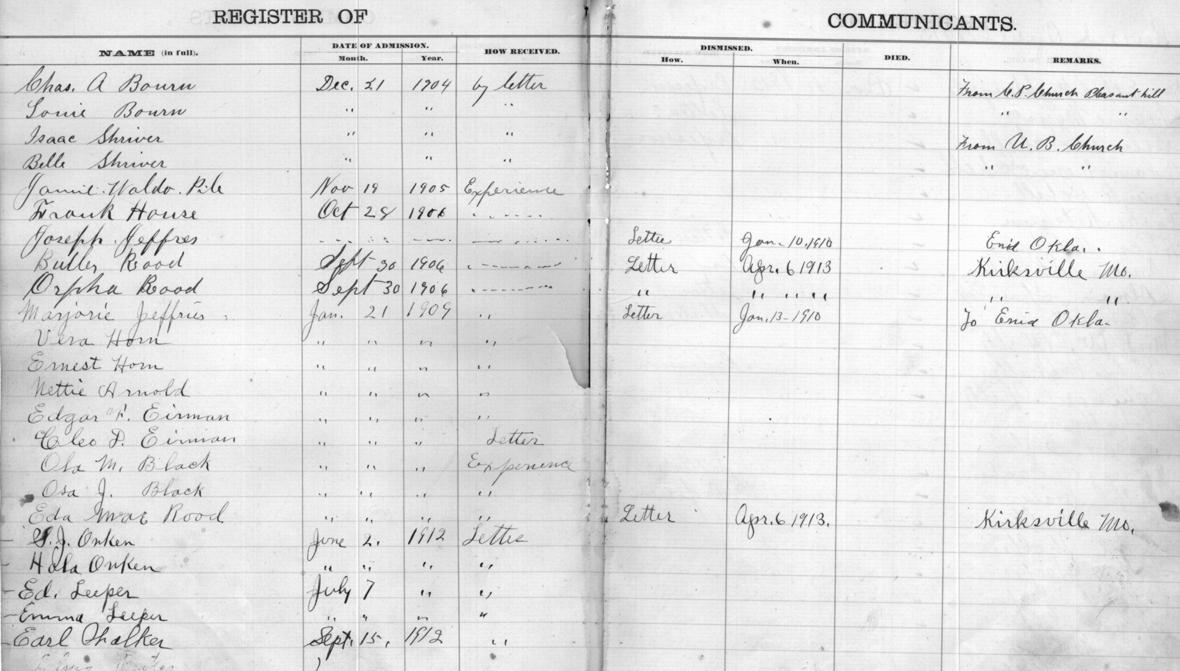 REGISTER OF COMMUNICANTS.
NAME (in full). DATE OF ADMISSION. HOW RECEIVED. DISMISSED. DIED. REMARKS.
Month. Year. How. When.
Chas. A Bourn Dec. 21 1904 by letter From C.P. Church Pleasant hill
Bourn " " " " "
Isaac Shriver " " " From U. B. Church
Belle Shriver " " " " "
Waldo Pile Nov 19 1905 Experience
Frank House Oct 28 1906 " "
Joseph Jeffres Letter Jan. 10, 1910 Enid Okla.
Butler Rood Sept 30 1906 Letter Apr. 6 1913 Kirksville Mo.
Orpha Rood Sept 30 1906 " " " " " "
Marjorie Jeffries Jan. 21 1909 " Letter Jan. 13 - 1910 To Enid Okla.
Vera Horn " " " "
Ernest Horn " " " "
Nettie Arnold " " " "
Edgar F. Eirman " " " "
Cleo D. Eirman " " " Letter
Ola M. Black " " " Experience
Osa J. Black " " " "
Eda Mae Rood " " " " Letter Apr. 6 1913. Kirksville Mo.
S. J. Onken June 2. 1912 Letter
Onken " " " "
Ed. Leeper July 7 " "
Emma Leeper " " " "
Earl Chalker Sept. 15. 1912 "